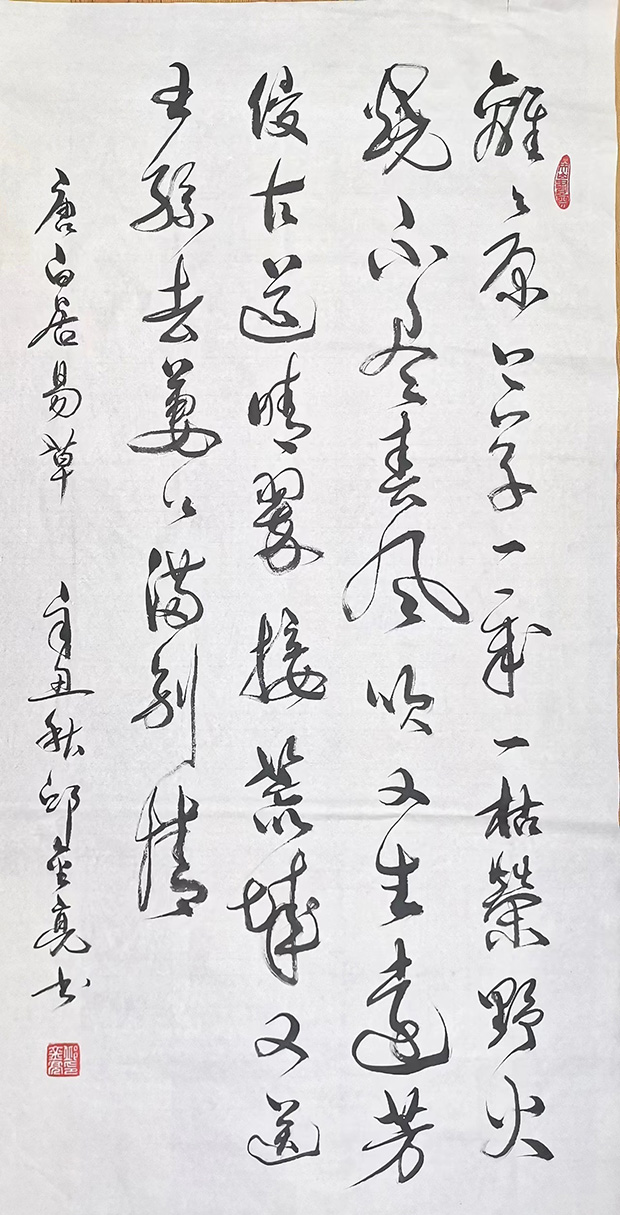 離々原上草一歲一枯榮野火
燒不盡春風吹又生遠芳
侵古道晴翠接荒城又送
王孫去萋々滿別情
唐白居易草 辛丑秋邱金亮书